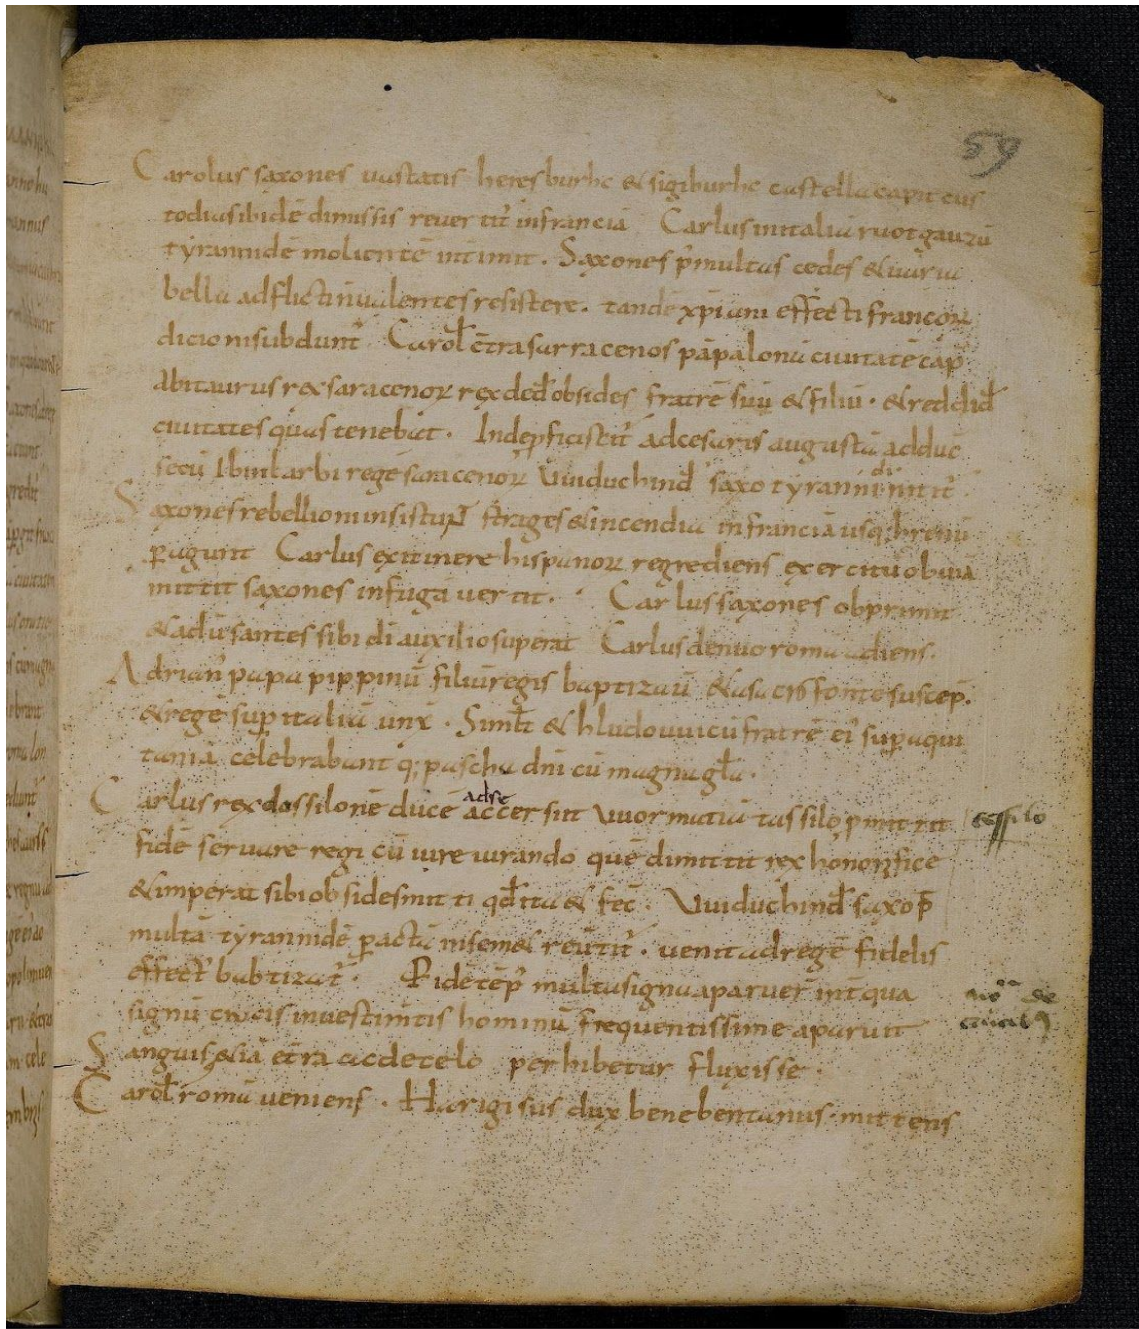 59
Carolus saxones uastatis heresburhc & sigiburhc castella capit cus
todiasibidē dimissis reuertit᷒ infranciā Carlus initaliā ruotgauzū
tyrannidē molientē intimit. Saxones p̄multas cedes & uaria
bella adflicti inualentes resistere. tandē xp̄iani effecti francoꝝ
dicioni subdunt᷒ Carol̄ c̄tra sarracenos pāpalonā ciuitatē cap̄
Abitaurus rex saracenoꝝ rex ded̄ obsides fratrē suū & filiū. & reddid̄
ciuitates quas tenebat. Inde adcesaris augustā adduc̄
secū Ibinlarbi regē saracenoꝝ Uuiduchind̄ saxo tyrannidi nitit᷒.
Saxones rebellioni insistūt strages & incendia infranciā usq; hrenū
ꝑagunt Carlus exitinere hispanoꝝ regrediens exercitū obuiā
mittit saxones infugā uertit. Carlus saxones obprimit
& aduersantes sibi di auxilio superat Carlus denuo romā adiens.
Adrian᷒ papa pippinū filiū regis baptizauit̄ & a sacro fonte suscep̄.
& regē sup italiā unx̄. Simil̄ & hludouuicū fratrē ei᷒ sup aqui
taniā celebrabant q; pascha dn̄i cū magna gl̄a.
Carlus rex dassilonē ducē adse accersiit Uuormatiā tassilo pmittit tassilo
fidē seruare regi cū iure iurando quē dimittit rex honorifice
& imperat sibi obsides mitti qd̄ ita & fec̄. Uuiduchind̄ saxo p̄
multā tyrannidē ꝑactā uenit adregē fidelis
effect᷒ babtizat᷒. Eidē tēp᷒ multa signa aparuer̄ int̄ qua
signū crucis inuestimtis hominū frequentissime aparuit
Sanguis & iā et̄ra ac de celo perhibetur fluxisse.
Carol̄ romā ueniens. Harigisus dux benebentanus. mittens